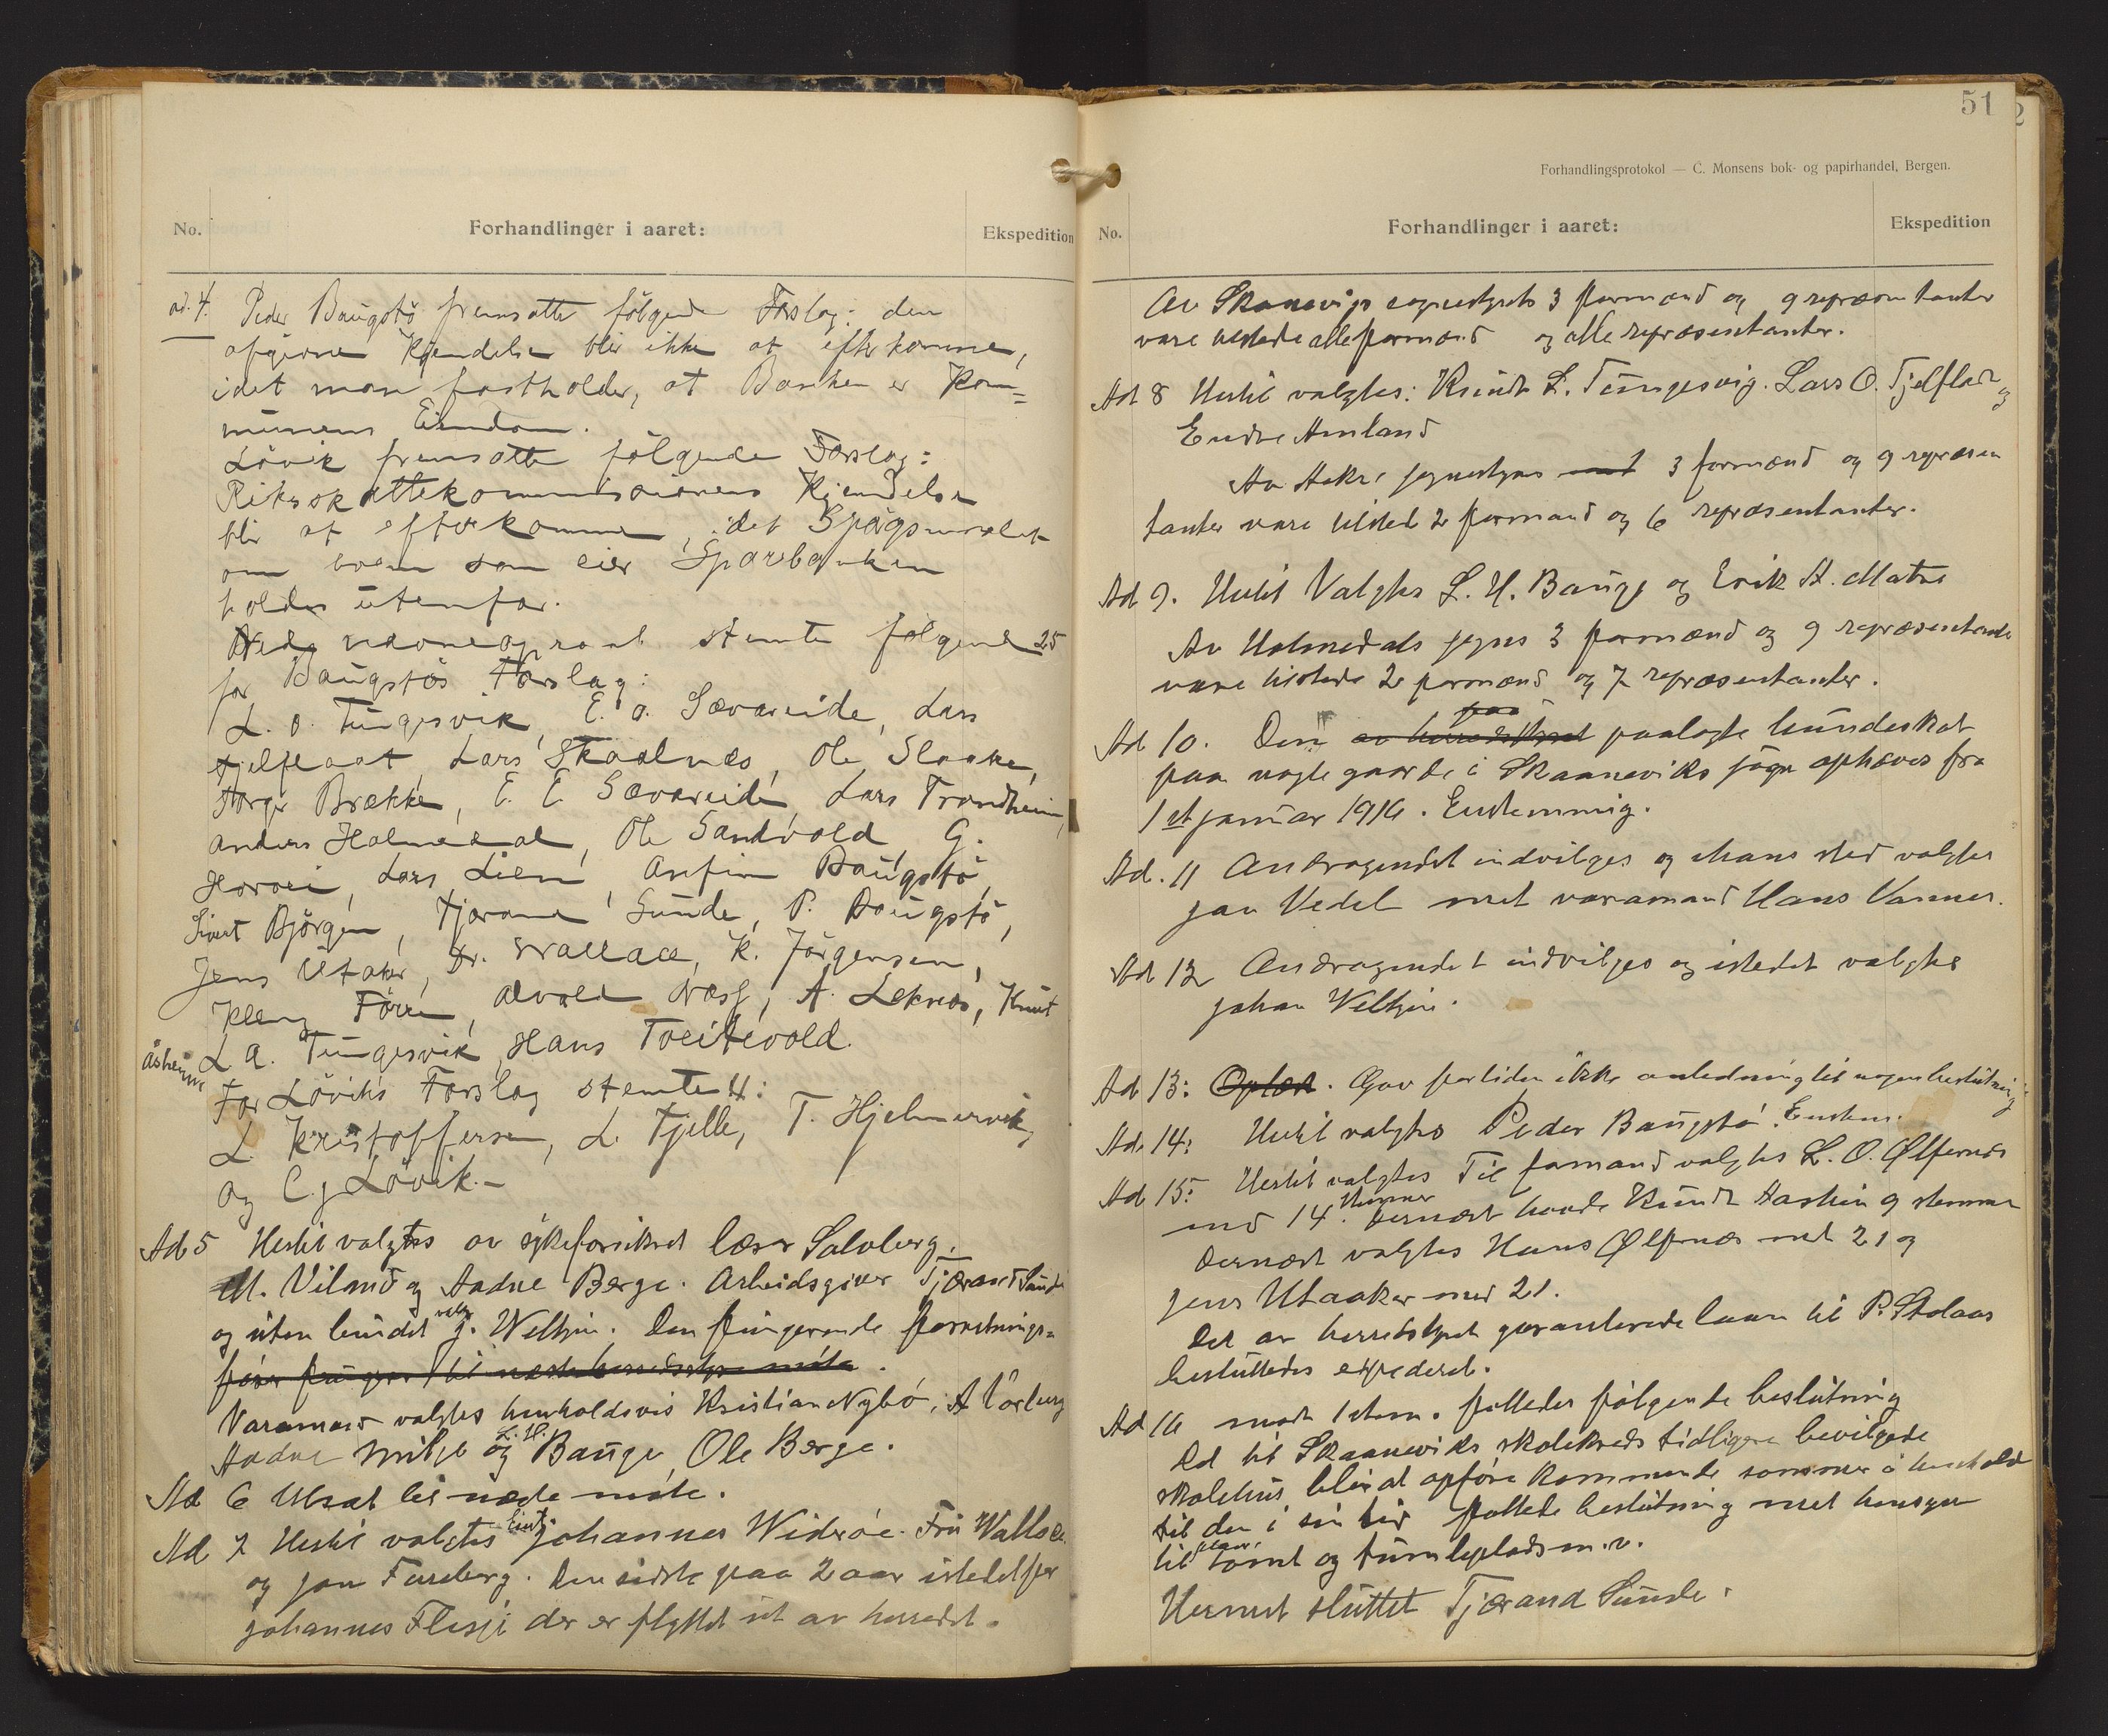 No.
Forhandlinger i aaret:
Ekspedition
ad. 4. Peder Baugstö fremsatte fölgende Forslag: den
afgivne Kjendelse blir ikke at efterkomme,
idet man fastholder, at Banken er Kom=
munens Eiendom.
Lövik fremsatte fölgende Forslag:
Riksskattekommissionens Kjendelse
blir at efterkomme, idet Spörgsmaalet
om hvem som eier Sparebanken
holdes utenfor.
Ved navneopraab stemte fölgende 25
for Baugstös Forslag:
L. O. Tungesvik, E. O. Sævareide, Lars
Fjelflaat, Lars Skaalnes, Ole Slaake,
Torger Brække, E. E. Sævareide Lars Trondheim,
Anders Holmedal, Ole Sandvold, G.
Lars Lien, Anfin Baugstö,
Sivert Björgen, Tjærand Sunde, P. Baugstö,
Jens Utaker, Dr. Wallace, K. Jörgensen,
Förre, Næss, A. Leknes, Knut
Åsheim
L. A. Tungesvik, Hans Tveitevold.
For Löviks Forslag stemte 4:
L. Kristoffersen, L. Fjelle, T. Hjelmervik,
og C. J. Lövik.-
Ad 5 Hertil valgtes av sykeforsikret læge Solberg.
M. Viland og Aadne Berge. Arbeidsgiver Tjærand Sunde
og uten bundet valg J. Weltzin. Den fungerende forretnings=
förer fungerer til næste herredsstyremöte.
Varamænd valgtes henholdsvis Kristian Nybö,
Aadne Milje og L. H. Bauge, Ole Berge.
Ad 6 Utsat til næste möte.
Ad 7 Hertil valgtes Johannes Wideröe. Fru Wallace
og Jon Fureberg. Den sidste paa 2 aar istedetfor
Johannes Flesje der er flyttet ut av herredet.
51
Forhandlingsprotokol — C. Monsens bok- og papirhandel, Bergen.
No.
Forhandlinger i aaret:
Ekspedition
Av Skaanevigs sognestyrets 3 formænd og 9 repræsentanter
vare tilstede alle formænd og alle repræsentanter.
Ad 8 Hertil valgtes: Knudt L. Tungesvig. Lars O. Fjelflaat og
Endre Amland
Av Aakre sognestyres 3 formænd og 9 repræsen
tanter vare tilsted 2 formænd og 6 repræsentanter.
Ad 9. Hertil Valgtes L. H. Bauge og Erik A. Matre
Av Holmedals sogns 3 formænd og 9 repræsentanter
vare tilstede 2 formænd og 7 repræsentanter.
Ad 10. Den av herredstyret paalagte hundeskat
paa nogle gaarde i Skaaneviks sogn ophæves fra
1ste januar 1916. Enstemmig.
Ad. 11 Andragendet indvilges og i hans sted valgtes
Jan Vedel med varamand Hans Vannes.
Ad 12 Andragendet indvilges og istedet valgtes
Johan Weltzin.
Ad 13: Oplæst. Gav fortiden ikke anledning til nogen beslutning
Ad 14: Hertil valgtes Peder Baugstö. Enstem.
Ad 15: Hertil valgtes Til formand valgtes L. O. Ølfernes
med 14 stemmer. Dernæst havde Knudt Aasheim 9 stemmer
Dernæst valgtes Hans Ølfernes med 21 og
Jens Utaaker med 21.
Det av herredstyret garanterede laan til P. Stolaas
besluttedes expederet.
Ad 16 mod 1 stem. fattedes fölgende beslutning
Det til Skaaneviks skolekreds tidligere bevilgede
skolehus blir at opföre kommende sommer i henhold
til den i sin tid fattede beslutning med hensyn
til plan, tomt og tumleplads m.v.
Hermed sluttet Tjærand Sunde.